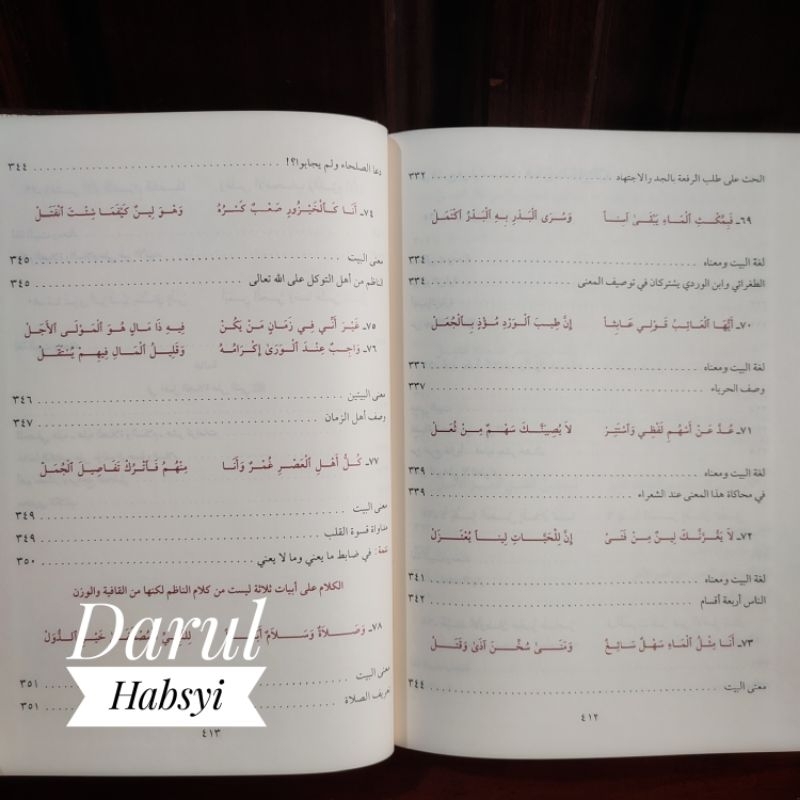 الحث على طلب الرفعة بالجد والاجتهاد ٣٣٢
٦٩ـ فَبِمُكْثِ ٱلْمَاءِ يَبْقَىٰ آسِناً وَسُرَى ٱلْبَدْرِ بِهِ ٱلْبَدْرُ ٱكْتَمَلْ
لغة البيت ومعناه ٣٣٤
الطغرائي وابن الوردي يشتركان في توصيف المعنى ٣٣٤
٧٠ـ أَيُّهَا ٱلْعَائِبُ قَوْلِي عَابِثاً إِنَّ طِيبَ ٱلْوَرْدِ مُؤْذٍ بِٱلْجُعَلْ
لغة البيت ومعناه ٣٣٦
وصف الحرباء ٣٣٧
٧١ـ عُدَّ عَنْ أَسْهُمِ لَفْظِي وَٱسْتَتِرْ لاَ يُصِيبَنَّكَ سَهْمٌ مِنْ ثُعَلْ
لغة البيت ومعناه ٣٣٩
في محاكاة هذا المعنى عند الشعراء ٣٣٩
٧٢ـ لاَ يَغُرَّنَّكَ لِينٌ مِنْ فَتَىً إِنَّ لِلْحَيَّاتِ لِيناً يُعْتَزَلْ
لغة البيت ومعناه ٣٤١
الناس أربعة أقسام ٣٤٢
٧٣ـ أَنَا مِثْلُ ٱلْمَاءِ سَهْلٌ سَائِغٌ وَمَتَىٰ سُخِّنَ آذَىٰ وَقَتَلْ
معنى البيت ٣٤٤
٤١٢
دعا الصلحاء ولم يجابوا؟! ٣٤٤
٧٤ـ أَنَا كَٱلْخَيْزُورِ صَعْبٌ كَسْرُهُ وَهُوَ لِينٌ كَيْفَمَا شِئْتَ ٱنْفَتَلْ
معنى البيت ٣٤٥
الناظم من أهل التوكل على الله تعالى ٣٤٥
٧٥ـ غَيْرَ أَنِّي فِي زَمَانٍ مَنْ يَكُنْ فِيهِ ذَا مَالٍ هُوَ ٱلْمَوْلَى ٱلأَجَلْ
٧٦ـ وَاجِبٌ عِنْدَ ٱلْوَرَىٰ إِكْرَامُهُ وَقَلِيلُ ٱلْمَالِ فِيهِمْ يُسْتَقَلْ
معنى البيتين ٣٤٦
وصف أهل الزمان ٣٤٧
٧٧ـ كُلُّ أَهْلِ ٱلْعَصْرِ غُمْرٌ وَأَنَا مِنْهُمُ فَٱتْرُكْ تَفَاصِيلَ ٱلْجُمَلْ
معنى البيت ٣٤٩
مداواة قسوة القلب ٣٤٩
تتمة: في ضابط ما يعني وما لا يعني ٣٥٠
الكلام على أبيات ثلاثة ليست من كلام الناظم لكنها من القافية والوزن
٧٨ـ وَصَلاَةٌ وَسَلاَمٌ خَيْرِ ٱلدُّوَلْ
معنى البيت ٣٥١
تعريف الصلاة ٣٥١
٤١٣
Darul
Habsyi